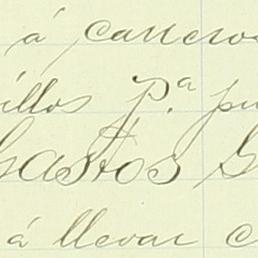 á carreros
illos p.ª pu
Gastos G
á llevar c